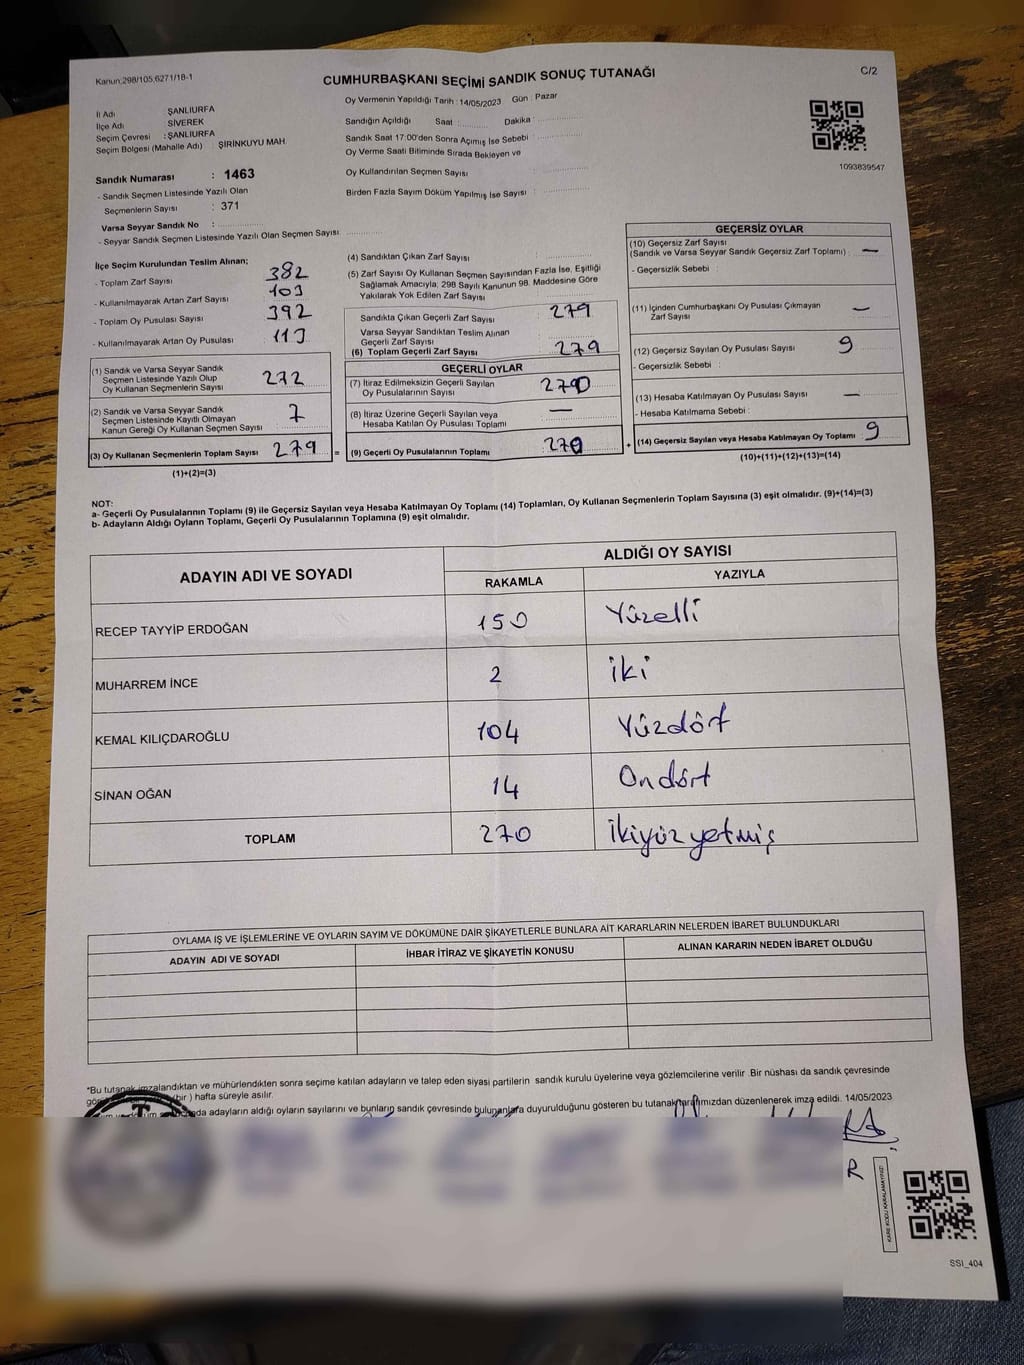 Kanun:298/105,6271/18-1
CUMHURBAŞKANI SEÇİMİ SANDIK SONUÇ TUTANAĞI
C/2
İl Adı ŞANLIURFA
İlçe Adı SİVEREK
Seçim Çevresi : ŞANLIURFA
Seçim Bölgesi (Mahalle Adı) ŞIRİNKUYU MAH.
Sandık Numarası : 1463
- Sandık Seçmen Listesinde Yazılı Olan
Seçmenlerin Sayısı : 371
Varsa Seyyar Sandık No :
- Seyyar Sandık Seçmen Listesinde Yazılı Olan Seçmen Sayısı
Oy Vermenin Yapıldığı Tarih : 14/05/2023 Gün : Pazar
Sandığın Açıldığı Saat : Dakika :
Sandık Saat 17:00'den Sonra Açımış İse Sebebi :
Oy Verme Saati Bitiminde Sırada Bekleyen ve
Oy Kullandırılan Seçmen Sayısı :
Birden Fazla Sayım Döküm Yapılmış İse Sayısı :
1093839547
İlçe Seçim Kurulundan Teslim Alınan;
- Toplam Zarf Sayısı 382
- Kullanılmayarak Artan Zarf Sayısı 103
- Toplam Oy Pusulası Sayısı 392
- Kullanılmayarak Artan Oy Pusulası 113
(1) Sandık ve Varsa Seyyar Sandık
Seçmen Listesinde Yazılı Olup
Oy Kullanan Seçmenlerin Sayısı 272
(2) Sandık ve Varsa Seyyar Sandık
Seçmen Listesinde Kayıtlı Olmayan
Kanun Gereği Oy Kullanan Seçmen Sayısı 7
(3) Oy Kullanan Seçmenlerin Toplam Sayısı 279 =
(1)+(2)=(3)
(4) Sandıktan Çıkan Zarf Sayısı
(5) Zarf Sayısı Oy Kullanan Seçmen Sayısından Fazla İse, Eşitliği
Sağlamak Amacıyla, 298 Sayılı Kanunun 98. Maddesine Göre
Yakılarak Yok Edilen Zarf Sayısı
Sandıkta Çıkan Geçerli Zarf Sayısı 279
Varsa Seyyar Sandıktan Teslim Alınan
Geçerli Zarf Sayısı
(6) Toplam Geçerli Zarf Sayısı 279
GEÇERLİ OYLAR
(7) İtiraz Edilmeksizin Geçerli Sayılan
Oy Pusulalarının Sayısı 270
(8) İtiraz Üzerine Geçerli Sayılan veya
Hesaba Katılan Oy Pusulası Toplamı —
(9) Geçerli Oy Pusulalarının Toplamı 270 +
GEÇERSİZ OYLAR
(10) Geçersiz Zarf Sayısı
(Sandık ve Varsa Seyyar Sandık Geçersiz Zarf Toplamı) : —
- Geçersizlik Sebebi :
(11) İçinden Cumhurbaşkanı Oy Pusulası Çıkmayan
Zarf Sayısı —
(12) Geçersiz Sayılan Oy Pusulası Sayısı 9
- Geçersizlik Sebebi :
(13) Hesaba Katılmayan Oy Pusulası Sayısı —
- Hesaba Katılmama Sebebi :
(14) Geçersiz Sayılan veya Hesaba Katılmayan Oy Toplamı 9
(10)+(11)+(12)+(13)=(14)
NOT:
a- Geçerli Oy Pusulalarının Toplamı (9) ile Geçersiz Sayılan veya Hesaba Katılmayan Oy Toplamı (14) Toplamları, Oy Kullanan Seçmenlerin Toplam Sayısına (3) eşit olmalıdır. (9)+(14)=(3)
b- Adayların Aldığı Oyların Toplamı, Geçerli Oy Pusulalarının Toplamına (9) eşit olmalıdır.
ADAYIN ADI VE SOYADI
ALDIĞI OY SAYISI
RAKAMLA YAZIYLA
RECEP TAYYİP ERDOĞAN 150 Yüzelli
MUHARREM İNCE 2 iki
KEMAL KILIÇDAROĞLU 104 Yüzdört
SİNAN OĞAN 14 Ondört
TOPLAM 270 İkiyüz yetmiş
OYLAMA İŞ VE İŞLEMLERİNE VE OYLARIN SAYIM VE DÖKÜMÜNE DAİR ŞİKAYETLERLE BUNLARA AİT KARARLARIN NELERDEN İBARET BULUNDUKLARI
ADAYIN ADI VE SOYADI İHBAR İTİRAZ VE ŞİKAYETİN KONUSU ALINAN KARARIN NEDEN İBARET OLDUĞU
*Bu tutanak imzalandıktan ve mühürlendikten sonra seçime katılan adayların ve talep eden siyasi partilerin sandık kurulu üyelerine veya gözlemcilerine verilir .Bir nüshası da sandık çevresinde
(bir ) hafta süreyle asılır.
adayların aldığı oyların sayılarını ve bunların sandık çevresinde bulunanlara duyurulduğunu gösteren bu tutanak tarafımızdan düzenlenerek imza edildi. 14/05/2023
R
KARE KODU KARALAMAYINIZ!
SSI_404